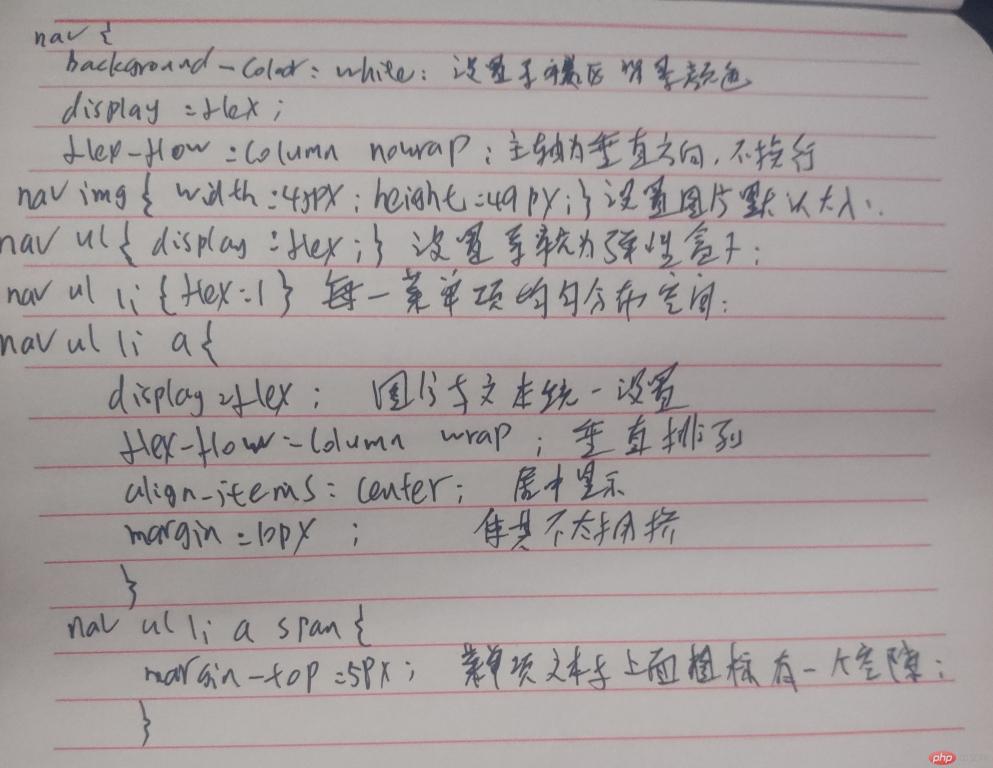 nav {
background-color = white; 设置导航区背景颜色
display = flex;
flex-flow = column nowrap; 主轴为垂直方向,不换行
nav img { width = 45px; height = 49px; } 设置图片默认大小.
nav ul { display = flex; } 设置导航为弹性盒子;
nav ul li { flex = 1 } 每一菜单项均匀分布空间;
nav ul li a {
display = flex; 图片与文本统一设置
flex-flow = column wrap; 垂直排列
align-items = center; 居中显示
margin = 10px ; 使其不太拥挤
}
nav ul li a span {
margin-top = 5px; 菜单项文本与上面图标有一个空隙;
}
php